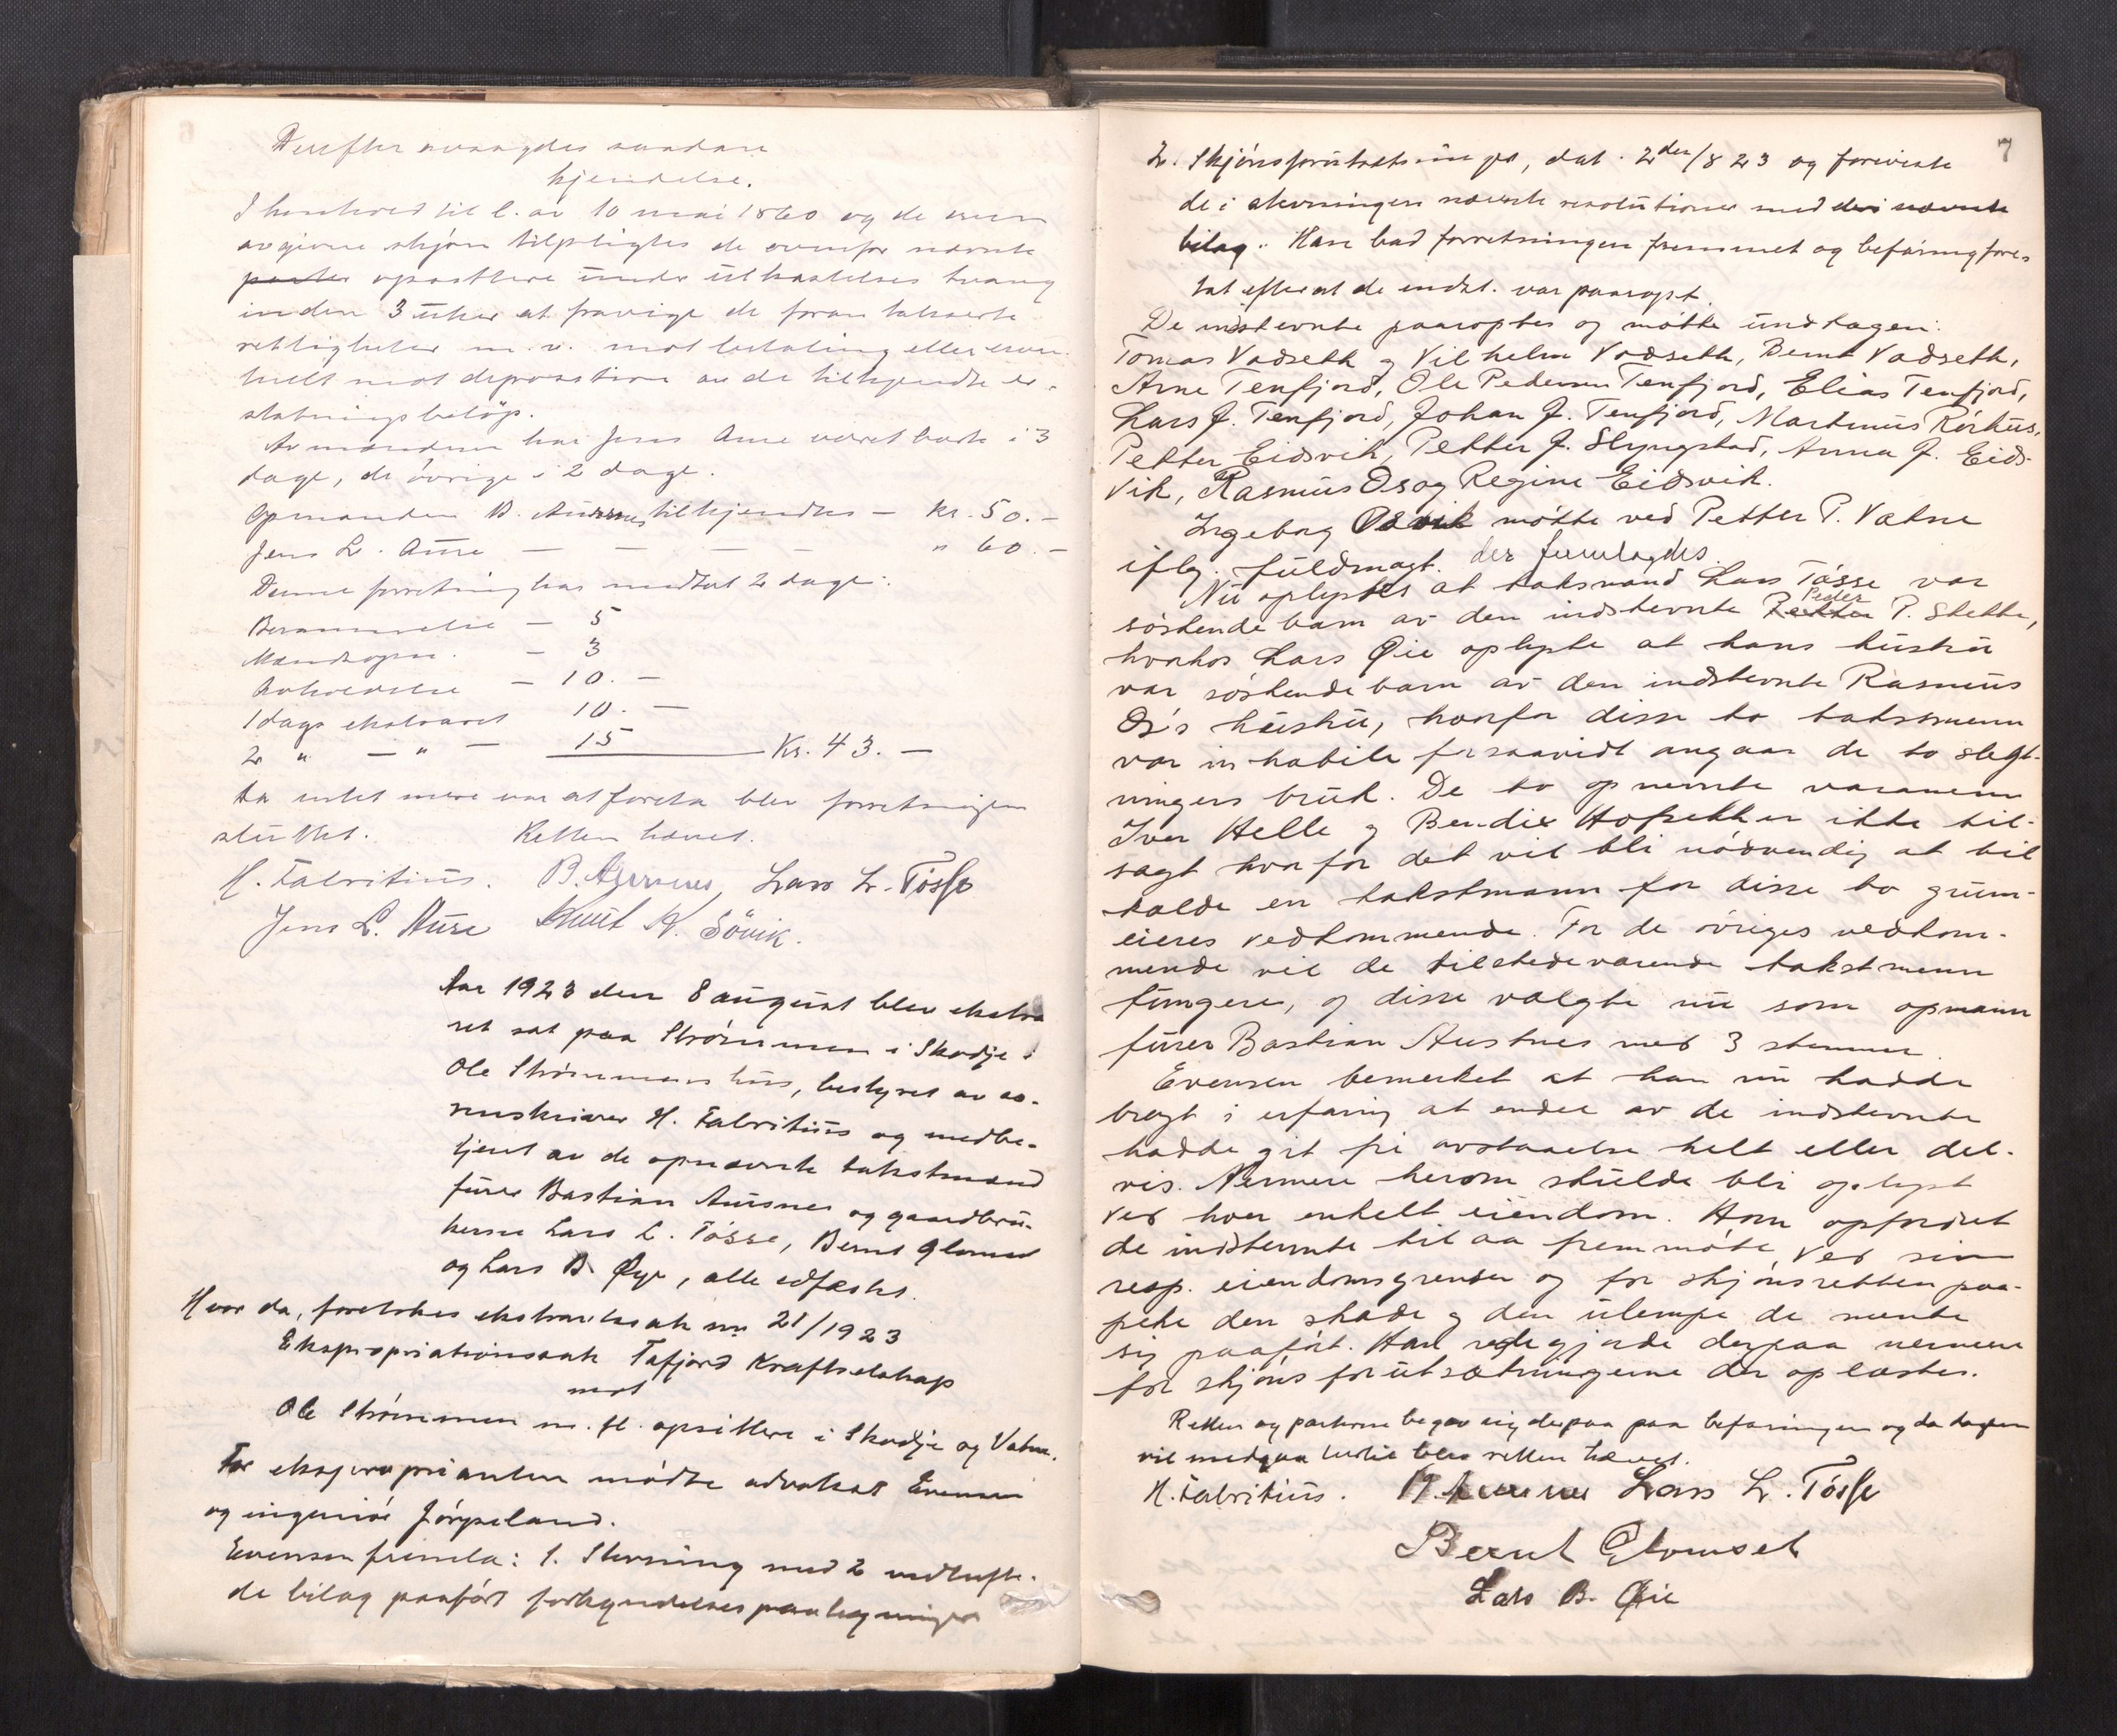 Derefter avsagdes saadan
kjendelse.
I henhold til l. av 10 mai 1860 og de oven
avgivne skjøn tilpligtes de ovenfor nævnte
parter opsittere under utkastelses tvang
inden 3 uker at fravige de foran takserte
rettigheter m. v. mot betaling eller even-
tuelt mot deposition av de tilkjendte er-
statningsbeløp.
Av mændene har Jens Aure været borte i 3
dage, de øvrige i 2 dage.
Opmanden B. Ausnes tilkjendes – kr. 50.–
Jens L. Aure – – – – " 60.–
Denne forretning har medtat 2 dage:
Berammelse – 5
Mændsopn. – 3
Avholdelse – 10.–
1 dags ekstraret 10.–
2 " – " – 15 Kr. 43.–
Da intet mere var at foreta blev forretningen
sluttet. Retten hævet.
H. Fabritius. B. Ausnes, Lars L. Tøsse
Jens L. Aure Knut K. Søvik.
Aar 1923 den 8 august blev ekstra
ret sat paa Strømmen i Skodje i
Ole Strømmens hus, bestyret av so-
renskriver H. Fabritius og medbe-
tjent av de opnævnte takstmænd
furer Bastian Ausnes og gaardbru-
kerne Lars L. Tøsse, Bernt Glomset
og Lars B. Øye, alle edfæstet.
Hvor da, foretokes ekstraretssak nr. 21/1923
Ekspropriationssak Tafjord Kraftselskap
mot
Ole Strømmen m. fl. opsittere i Skodje og Vatne.
For eksproprianten mødte advokat Evensen
og ingeniør Jørpeland.
Evensen fremla: 1. Stevning med 2 vedhefte-
de bilag paaført forkyndelsespaategninger
7
2. Skjønsforutsætninger, dat. 2den/8 23 og foreviste
de i stevningen nævnte resolutioner med de i nævnte
bilag. Han bad forretningen fremmet og befaring fore-
tat efterat de indst. var paaropt.
De indstevnte paaroptes og møtte undtagen:
Tomas Vadseth og Vilhelm Vadseth, Bernt Vadseth,
Arne Tenfjord, Ole Pedersen Tenfjord, Elias Tenfjord,
Lars J. Tenfjord, Johan J. Tenfjord, Martinus Rørhus,
Petter Eidsvik, Petter J. Slyngstad, Anna J. Eids-
vik, Rasmus Os og Regine Eidsvik.
Ingeborg Osvik møtte ved Petter P. Vatne
iflg. fuldmagt. der fremlagdes
Nu oplystes at taksmand Lars Tøsse var
søskende barn av den indstevnte Petter Peder P. Stette,
hvorhos Lars Øie oplyste at hans hustru
var søskendebarn av den indstevnte Rasmus
Os's hustru, hvorfor disse to takstmenn
var inhabile forsaavidt angaar de to slegt-
ningers bruk. De to opnevnte varamenn
Iver Helle og Bendix Hofseth er ikke til-
sagt hvorfor det vil bli nødvendig at til
kalde en takstmann for disse to grunn-
eieres vedkommende. For de øvriges vedkom-
mende vil de tilstedeværende takstmenn
fungere, og disse valgte nu som opmann
furer Bastian Austnes med 3 stemmer.
Evensen bemerket at han nu hadde
bragt i erfaring at endel av de indstevnte
hadde git fri avstaaelse helt eller del-
vis. Nermere herom skulde bli oplyst
ved hver enkelt eiendom. Han opfordret
de indstevnte til aa fremmøte ved sine
resp. eiendomsgrenser og for skjønsretten paa-
peke den skade og den ulempe de mente
sig paaført. Han redegjorde derpaa nermere
for skjønsforutsætningerne der oplæstes.
Retten og parterne begav sig derpaa paa befaringen og da dagen
vil medgaa hertil blev retten hævet.
H. Fabritius. B. Ausnes Lars L. Tøsse
Bernt Glomset
Lars B. Øie